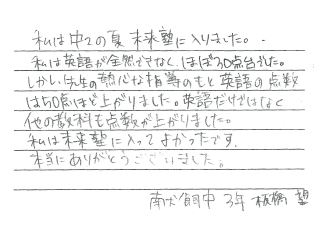 私は中2の夏 未来塾に入りました。
私は英語が全然できなく、ほぼ30点台でした。
しかし先生の熱心な指導のもと英語の点数
は50点ほど上がりました。英語だけではなく
他の教科も点数が上がりました。
私は未来塾に入ってよかったです。
本当にありがとうございました。
南犬飼中 3年 板橋 望